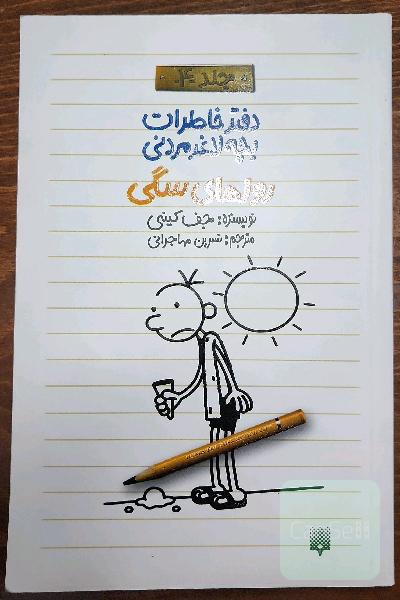 مجلد ۴
دفتر خاطرات
بچه لاغر مردنی
روزهای سگی
نویسنده: جف کینی
مترجم: نسرین مهاجرانی